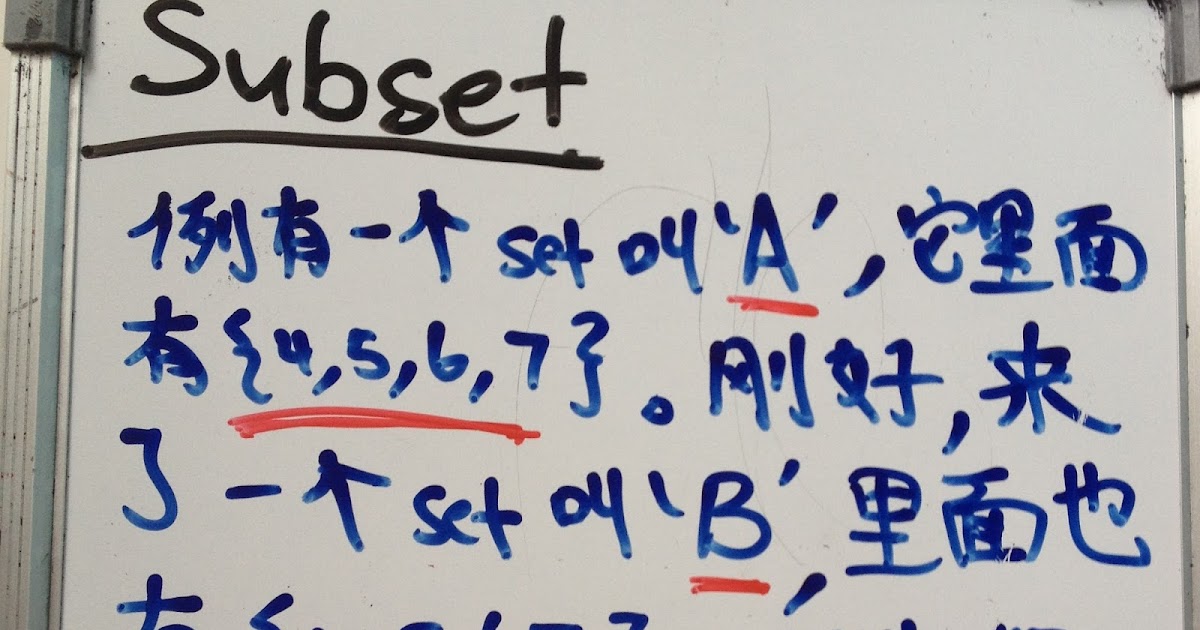 Subset
例有一个 set 叫‘A’, 它里面
有{4,5,6,7}。刚好,来
了一个 set 叫‘B’,里面也
有{